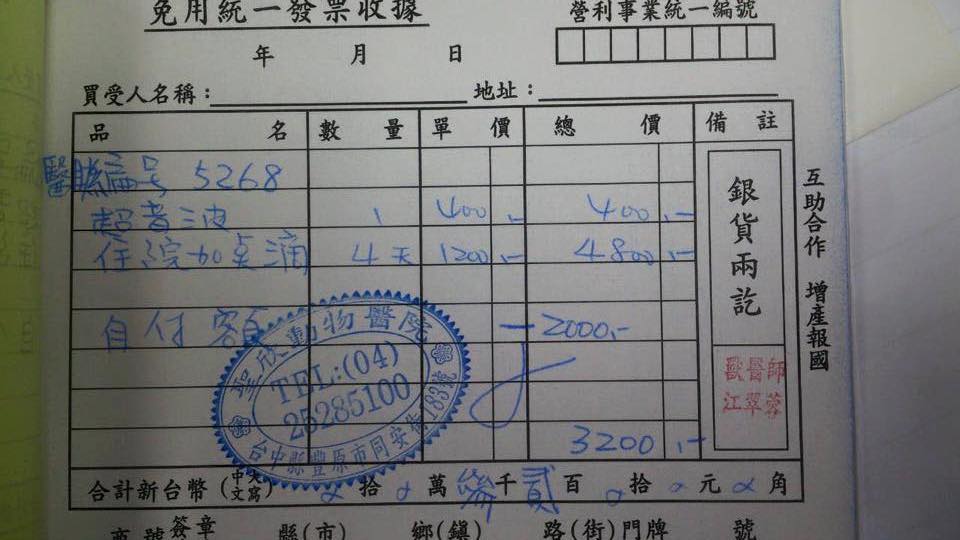 免用統一發票收據 營利事業統一編號
年 月 日
買受人名稱： 地址：
品名 數量 單價 總價 備註
醫購編号 5268
超音波 1 400,- 400,-
住院加点滴 4天 1200,- 4800,-
自付客自 -2000,-
3200,-
銀貨兩訖
獸醫師
江翠蓉
互助合作 增產報國
聖欣動物醫院
TEL:(04)
25285100
台中縣豐原市同安街183號
合計新台幣(中文大寫) 拾 萬 叁千貳百 拾 元 角
商號簽章 縣(市) 鄉(鎮) 路(街)門牌 號